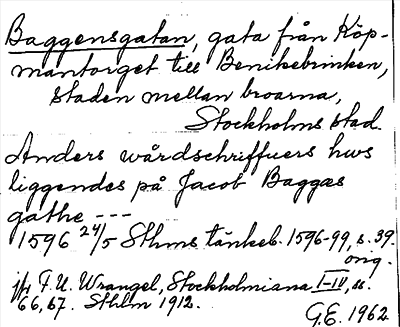 Baggensgatan, gata från Köp-
mantorget till Benikebrinken,
staden mellan broarna,
Stockholms stad.
Anders wårdschriffuers hws
liggendes på Jacob Bagges
gathe ---
1596 24/5 Sthms tänkeb. 1596-99, s. 39.
orig.
jfr F.U. Wrangel, Stockholmiana I-IV, s.
66, 67. Sthlm 1912.
G.E. 1962